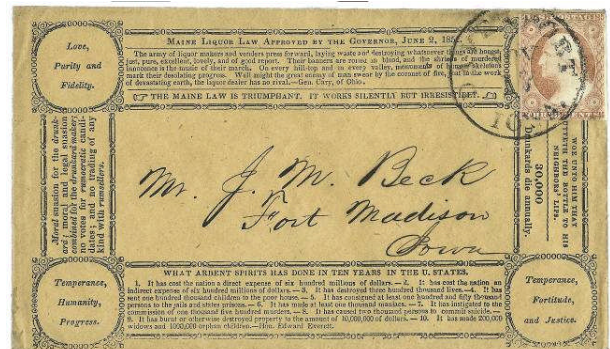 Love,
Purity and
Fidelity.
MAINE LIQUOR LAW APPROVED BY THE GOVERNOR, JUNE 2, 185
The army of liquor makers and venders press forward, laying waste and destroying whatsoever things are honest,
just, pure, excellent, lovely, and of good report. Their banners are rolled in blood, and the shrieks of murdered
innocence is the music of their march. On every hill-top and in every valley, monuments of human skeletons
mark their desolating progress. Well might the great enemy of man swear by the cornets of fire, that in the work
of devastating earth, the liquor dealer has no rival.—Gen. Cary, of Ohio.
THE MAINE LAW IS TRIUMPHANT. IT WORKS SILENTLY BUT IRRESISTIBLY.
Moral suasion for the drunk-
ard; moral and legal suasion
combined for the drunkard maker;
no votes for rumocratic candi-
dates; and no trading of any
kind with rumsellers.
WOE UNTO HIM THAT
PUTTETH THE BOTTLE TO HIS
NEIGHBORS' LIPS.
30,000
Drunkards die annually.
Mr. J. M. Beck
Fort Madison
Iowa
Temperance,
Humanity,
Progress.
WHAT ARDENT SPIRITS HAS DONE IN TEN YEARS IN THE U. STATES.
1. It has cost the nation a direct expense of six hundred millions of dollars. — 2. It has cost the nation an
indirect expense of six hundred millions of dollars. — 3. It has destroyed three hundred lives. — 4. It has
sent one hundred thousand children to the poor house. — 5. It has consigned at least one hundred and fifty thousand
persons to the jails and states prisons. — 6. It has made at least one thousand maniacs. — 7. It has instigated to the
commission of one thousand five hundred murders. — 8. It has caused two thousand persons to commit suicide. —
9. It has burnt or otherwise destroyed property to the amount of 10,000,000 of dollars. — 10. It has made 200,000
widows and 1000,000 orphan children.—Hon. Edward Everett.
Temperance,
Fortitude,
and Justice.